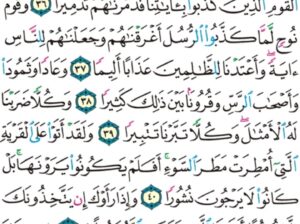 ٱلْقَوْمِ ٱلَّذِينَ كَذَّبُوا۟ بِـَٔايَٰتِنَا فَدَمَّرْنَٰهُمْ تَدْمِيرًا ٣٦ وَقَوْمَ
نُوحٍ لَّمَّا كَذَّبُوا۟ ٱلرُّسُلَ أَغْرَقْنَٰهُمْ وَجَعَلْنَٰهُمْ لِلنَّاسِ
ءَايَةً وَأَعْتَدْنَا لِلظَّٰلِمِينَ عَذَابًا أَلِيمًا ٣٧ وَعَادًا وَثَمُودَا۟
وَأَصْحَٰبَ ٱلرَّسِّ وَقُرُونًۢا بَيْنَ ذَٰلِكَ كَثِيرًا ٣٨ وَكُلًّا ضَرَبْنَا
لَهُ ٱلْأَمْثَٰلَ وَكُلًّا تَبَّرْنَا تَتْبِيرًا ٣٩ وَلَقَدْ أَتَوْا۟ عَلَى ٱلْقَرْيَةِ
ٱلَّتِىٓ أُمْطِرَتْ مَطَرَ ٱلسَّوْءِ أَفَلَمْ يَكُونُوا۟ يَرَوْنَهَا بَلْ
كَانُوا۟ لَا يَرْجُونَ نُشُورًا ٤٠ وَإِذَا رَأَوْكَ إِن يَتَّخِذُونَكَ